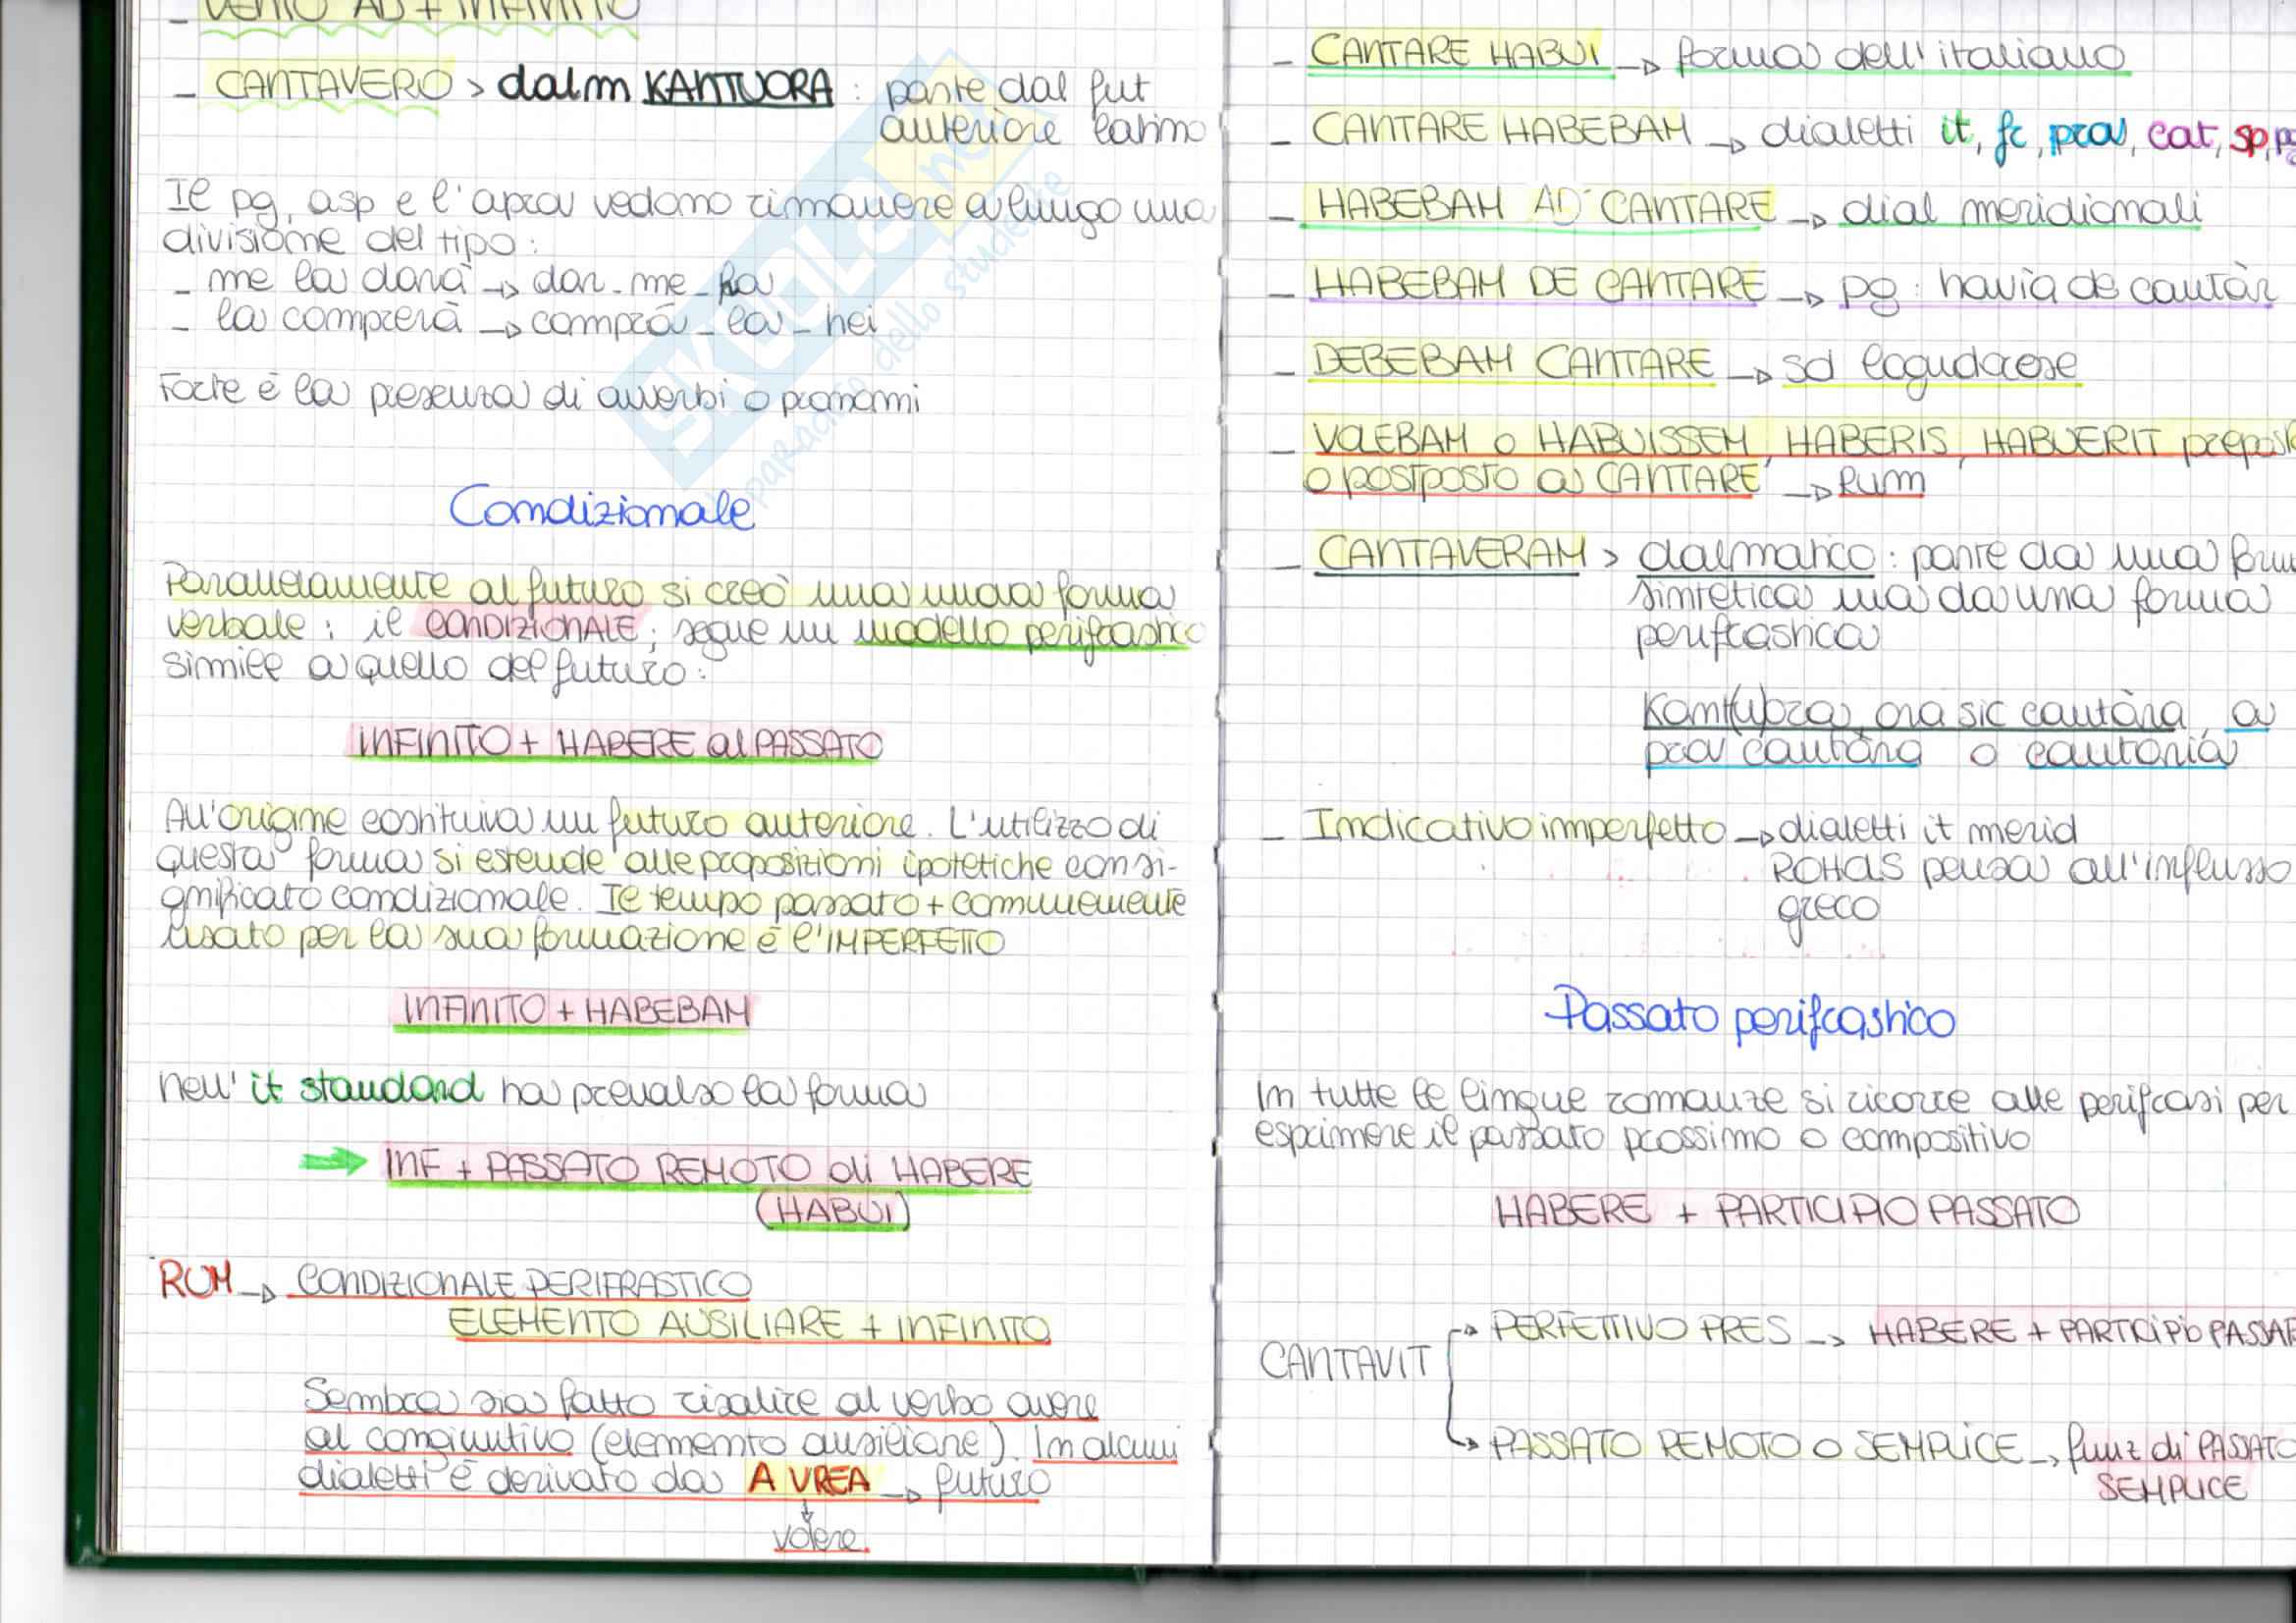 - VENIO AD + INFINITO
- CANTAVERO > dalm KANTUORA : parte dal fut
anteriore latino
Il pg, asp e l'aprov vedono rimanere a lungo una
divisione del tipo:
- me la darà → dar-me-ha
- la comprerà → comprá-la-hei
Forte è la presenza di avverbi o pronomi
Condizionale
Parallelamente al futuro si creò una nuova forma
verbale: il CONDIZIONALE; segue un modello perifrastico
simile a quello del futuro:
INFINITO + HABERE al PASSATO
All'origine costituiva un futuro anteriore. L'utilizzo di
questa forma si estende alle proposizioni ipotetiche con si-
gnificato condizionale. Il tempo passato + comunemente
usato per la sua formazione è l'IMPERFETTO
INFINITO + HABEBAM
Nell'it standard ha prevalso la forma
→ INF + PASSATO REMOTO di HABERE
(HABUI)
RUM → CONDIZIONALE PERIFRASTICO
ELEMENTO AUSILIARE + INFINITO
Sembra sia fatto risalire al verbo avere
al congiuntivo (elemento ausiliare). In alcuni
dialetti è derivato da A VREA → futuro
volere.
- CANTARE HABUI → forma dell'italiano
- CANTARE HABEBAM → dialetti it, fr, prov, cat, sp, pg
- HABEBAM AD CANTARE → dial meridionali
- HABEBAM DE CANTARE → pg: havia de cantàr
- DEBEBAM CANTARE → sd logudorese
- VOLEBAM o HABUISSEM, HABERIS, HABUERIT
o postposto a CANTARE → Rum
- CANTAVERAM > dalmatico: parte da una
sintetica ma da una forma
perifrastica
Kant(u)ora, ora sic cantàra, a
prov cantàra o cantaria
- Indicativo imperfetto → dialetti it merid
ROHLFS pensa all'influsso
greco
Passato perifrastico
In tutte le lingue romanze si ricorre alle perifrasi per
esprimere il passato prossimo o compositivo
HABERE + PARTICIPIO PASSATO
CANTAVIT
→ PERFETTIVO PRES → HABERE + PARTICIPIO
→ PASSATO REMOTO O SEMPLICE → funz di PASSATO
SEMPLICE
SKUOLA.net
il paradiso dello studente